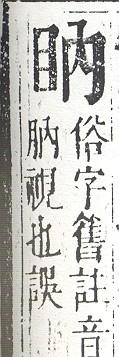 眪
俗字舊註音
肭視也誤